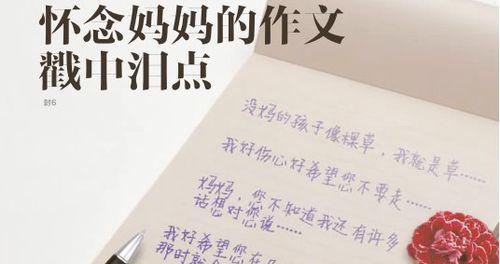 怀念妈妈的作文
戳中泪点
封6
没妈的孩子像棵草，我就是草……
我好伤心好希望您不要走……
妈妈，您不知道我还有许多
话想对您说……
我好希望您在
那时就